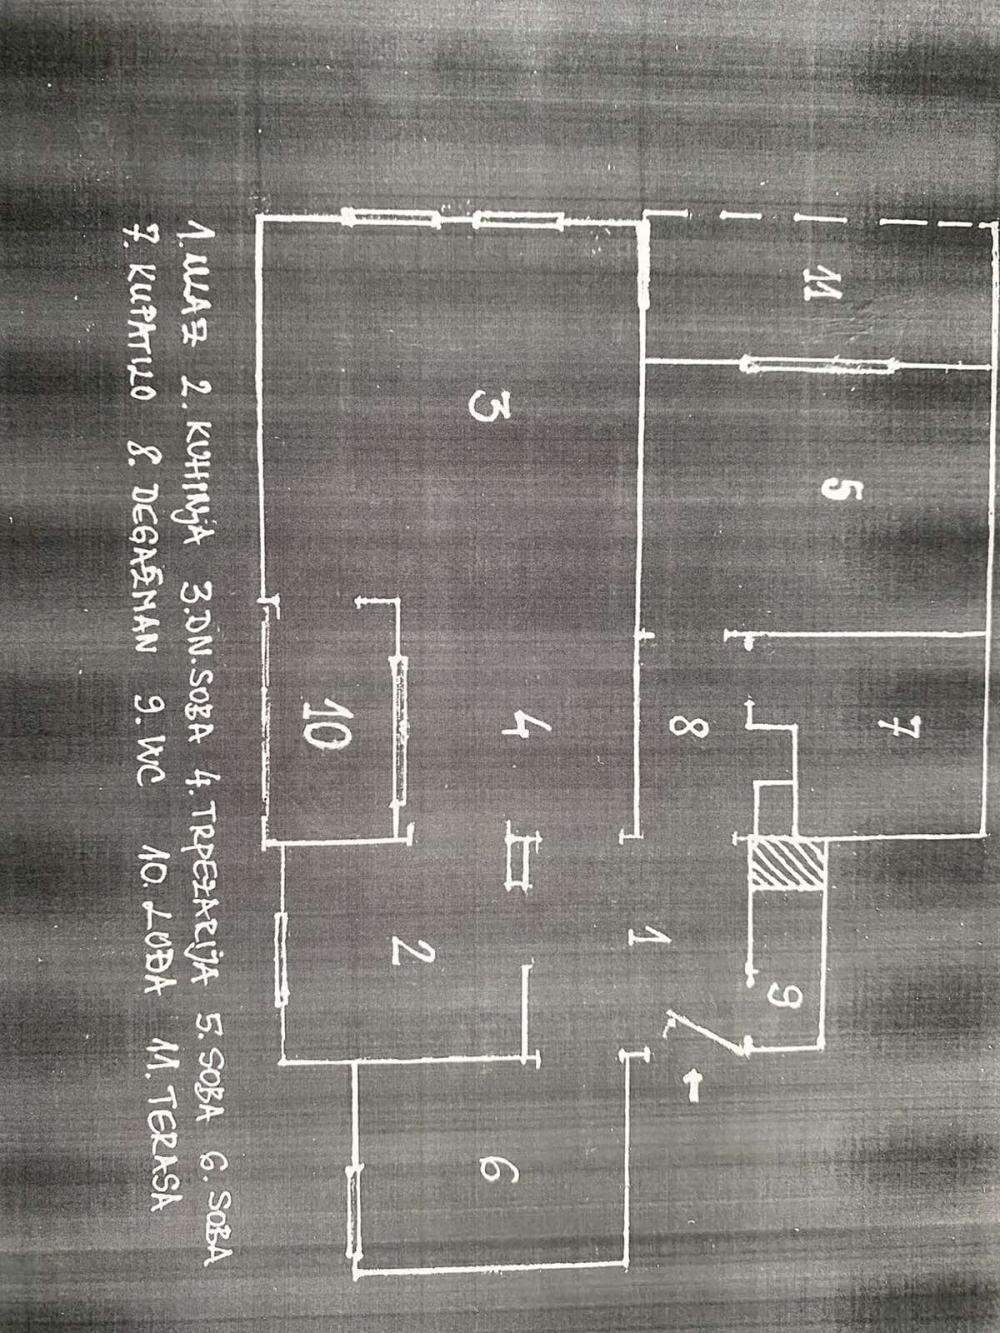 11
5
7
3
4
8
10
1
9
2
6
1. ULAZ 2. KUHINJA 3. DN. SOBA 4. TRPEZARIJA 5. SOBA 6. SOBA
7. KUPATILO 8. DEGAŽMAN 9. WC 10. LOĐA 11. TERASA